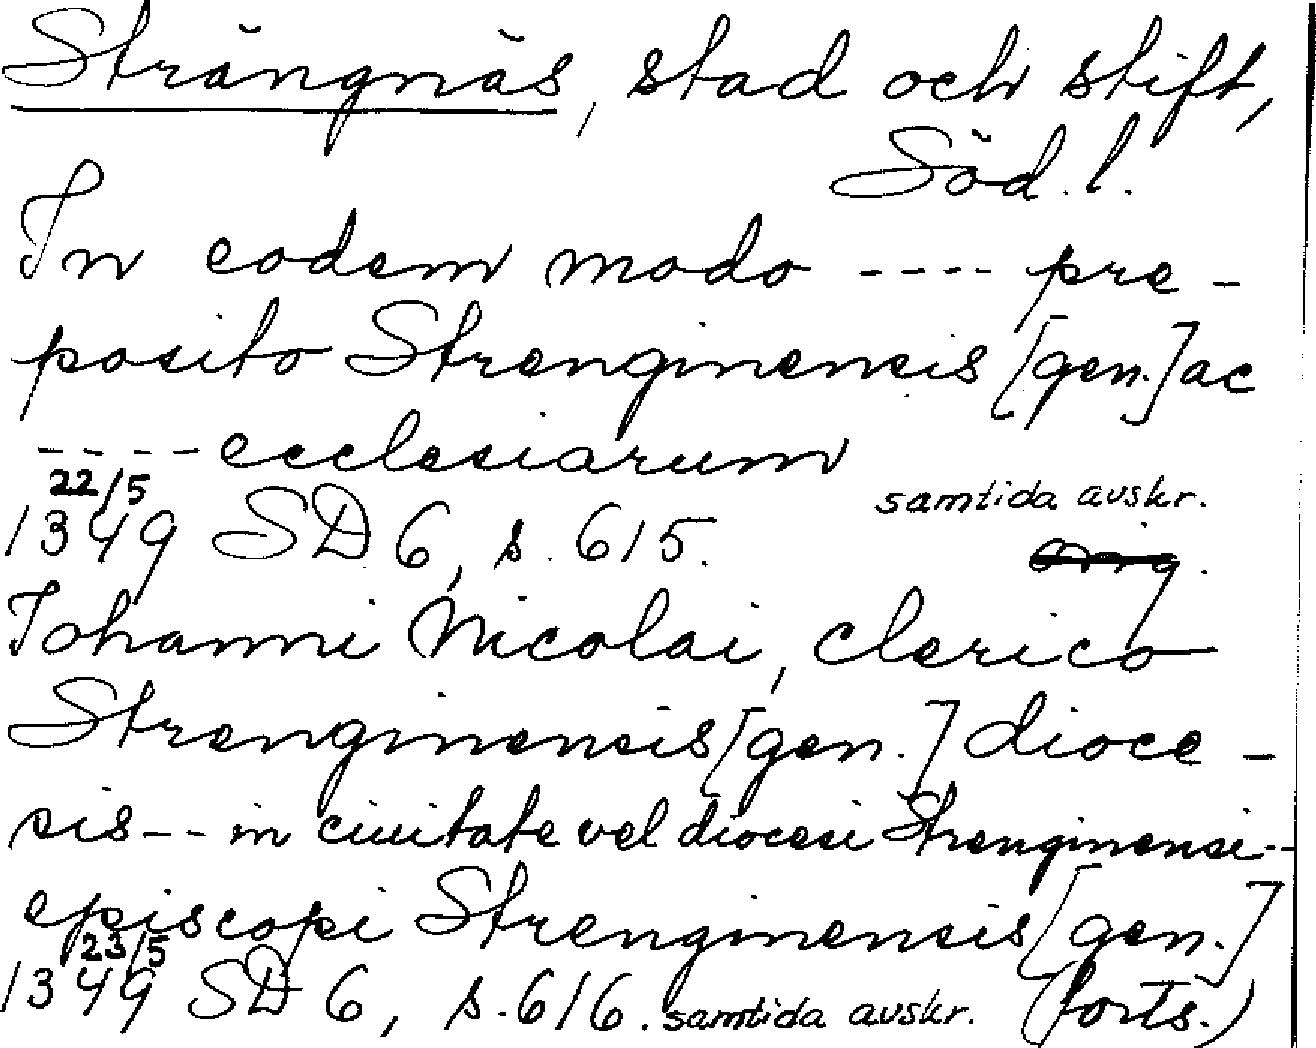 Strängnäs, stad och stift,
Söd. l.
In eodem modo ---- pre-
posito Strenginensis [gen.] ac
---- ecclesiarum
22/5 samtida avskr.
1349 SD 6, s. 615. orig.
Iohanni Nicolai, clerico
Strenginensis [gen.] dioce-
sis -- in ciuitate vel diocesi Strenginensi--
episcopi Strenginensis [gen.]
23/5
1349 SD 6, s. 616. samtida avskr. (forts.)